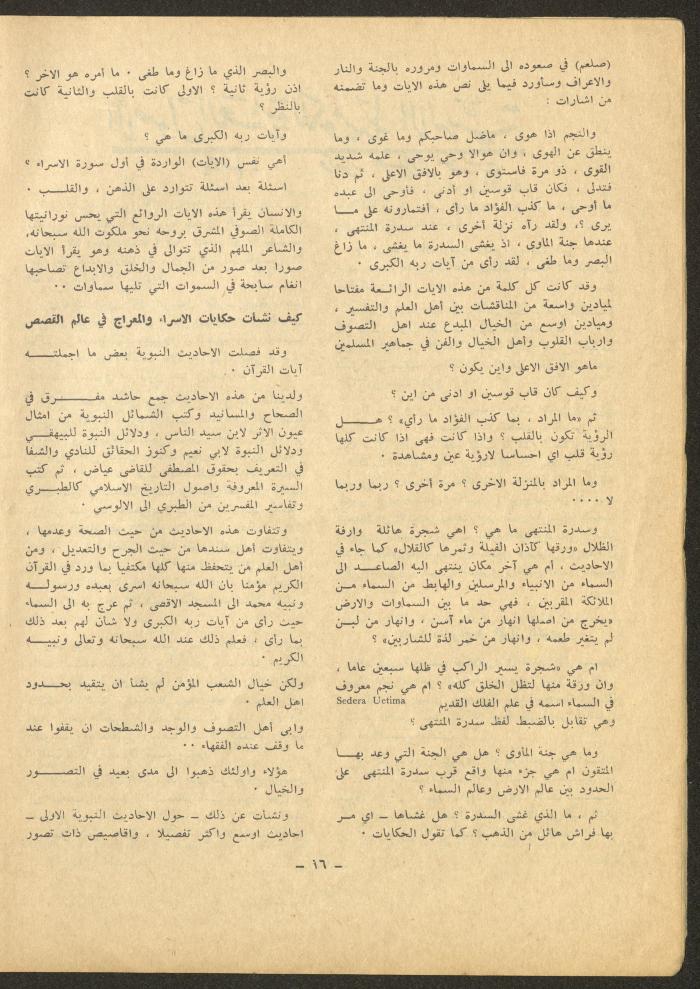 (صلعم) في صعوده الى السماوات ومروره بالجنة والنار
والاعراف وسأورد فيما يلى نص هذه الايات وما تضمنه
من اشارات :
والنجم اذا هوى ، ماضل صاحبكم وما غوى ، وما
ينطق عن الهوى ، وان هوالا وحي يوحى ، علمه شديد
القوى ، ذو مرة فاستوى ، وهو بالافق الاعلى ، ثم دنا
فتدلى ، فكان قاب قوسين او أدنى ، فأوحى الى عبده
ما أوحى ، ما كذب الفؤاد ما رأى ، أفتمارونه على مـــا
يرى ؟، ولقد رآه نزلة أخرى ، عند سدرة المنتهى ،
عندها جنة الماوى ، اذ يغشى السدرة ما يغشى ، ما زاغ
البصر وما طغى ، لقد رأى من آيات ربه الكبرى .
وقد كانت كل كلمة من هذه الايات الرائـعة مفتاحا
لميادين واسعة من المناقشات بين أهل العلم والتفسير ،
وميادين اوسع من الخيال المبدع عند اهل التصوف
وارباب القلوب وأهل الخيال والفن في جماهير المسلمين
ماهو الافق الاعلى واين يكون ؟
وكيف كان قاب قوسين او ادنى من اين ؟
ثم «ما المراد ، بما كذب الفؤاد ما رأى» ؟ هـــــل
الرؤية تكون بالقلب ؟ واذا كانت فهى اذا كانت كلها
رؤية قلب اي احساسا لارؤية عين ومشاهدة .
وما المراد بالمنزلة الاخرى ؟ مرة أخرى ؟ ربما وربما
لا ....
وسدرة المنتهى ما هي ؟ اهي شجرة هائلة وارفة
الظلال «ورقها كآذان الفيلة وثمرها كالقلال» كما جاء في
الاحاديث ، ام هي آخر مكان ينتهى اليه الصاعــد الى
السماء من الانبياء والمرسلين والهابط من السماء مــن
الملائكة المقربين ، فهي حد ما بين السماوات والارض
«يخرج من اصلها انهار من ماء آسن ، وانهار من لبــن
لم يتغير طعمه ، وانهار من خمر لذة للشاربين» ؟
ام هي «شجرة يسير الراكب في ظلها سبعين عاما ،
وان ورقة منها لتظل الخلق كله» ؟ ام هي نجم معروف
في السماء اسمه في علم الفلك القديم Sedera Uetima
وهي تقابل بالضبط لفظ سدرة المنتهى ؟
وما هي جنة المأوى ؟ هل هي الجنة التي وعد بهـــا
المتقون ام هي جزء منها واقع قرب سدرة المنتهى على
الحدود بين عالم الارض وعالم السماء ؟
ثم ، ما الذي غشى السدرة ؟ هل غشاها ــ اي مــر
بها فراش هائل من الذهب ؟ كما تقول الحكايات .
والبصر الذي ما زاغ وما طغى . ما امره هو الاخر ؟
اذن رؤية ثانية ؟ الاولى كانت بالقلب والثانية كانت
بالنظر ؟
وآيات ربه الكبرى ما هي ؟
أهي نفس (الايات) الواردة في أول سورة الاسراء ؟
اسئلة بعد اسئلة تتوارد على الذهن ، والقلـــب .
والانسان يقرأ هذه الايات الروائع التي يحس نورانيتها
الكاملة الصوفي المشرق بروحه نحو ملكوت الله سبحانه،
والشاعر الملهم الذي تتوالى في ذهنه وهو يقرأ الايات
صورا بعد صور من الجمال والخلق والابداع تصاحبها
انغام سابحة في السموات التي تليها سماوات ..
كيف نشات حكايات الاسراء والمعراج في عالم القصص
وقد فصلت الاحاديث النبوية بعض ما اجملتـــــه
آيات القرآن .
ولدينا من هذه الاحاديث جمع حاشد مفـــــرق في
الصحاح والمسانيد وكتب الشمائل النبوية من امثال
عيون الاثر لابن سيد الناس ، ودلائل النبوة للبيهقـــي
ودلائل النبوة لابي نعيم وكنوز الحقائق للنادي والشفا
في التعريف بحقوق المصطفى للقاضي عياض ، ثم كتب
السيرة المعروفة واصول التاريخ الاسلامي كالطبـــري
وتفاسير المفسرين من الطبري الى الالوسي .
وتتفاوت هذه الاحاديث من حيث الصحة وعدمها ،
ويتفاوت أهل سندها من حيث الجرح والتعديل ، ومن
أهل العلم من يتحفظ منها كلها مكتفيا بما ورد في القرآن
الكريم مؤمنا بان الله سبحانه اسرى بعبده ورسولــــه
ونبيه محمد الى المسجد الاقصى ، ثم عرج به الى السماء
حيث رأى من آيات ربه الكبرى ولا شان لهم بعد ذلك
بما رأى ، فعلم ذلك عند الله سبحانه وتعالى ونبيـــه
الكريم .
ولكن خيال الشعب المؤمن لم يشأ ان يتقيد بحـــدود
اهل العلم .
وابى أهل التصوف والوجد والشطحات ان يقفوا عند
ما وقف عنده الفقهاء ..
هؤلاء واولئك ذهبوا الى مدى بعيد في التصـــــور
والخيال .
ونشأت عن ذلك ــ حول الاحاديث النبوية الاولى ــ
احاديث اوسع واكثر تفصيلا ، واقاصيص ذات تصور
ــ ١٦ ــ